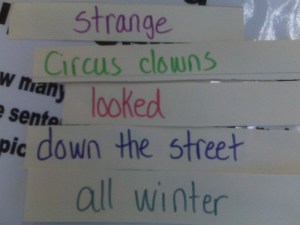 strange
Circus clowns
looked
down the street
all winter
w many
e sente
pic